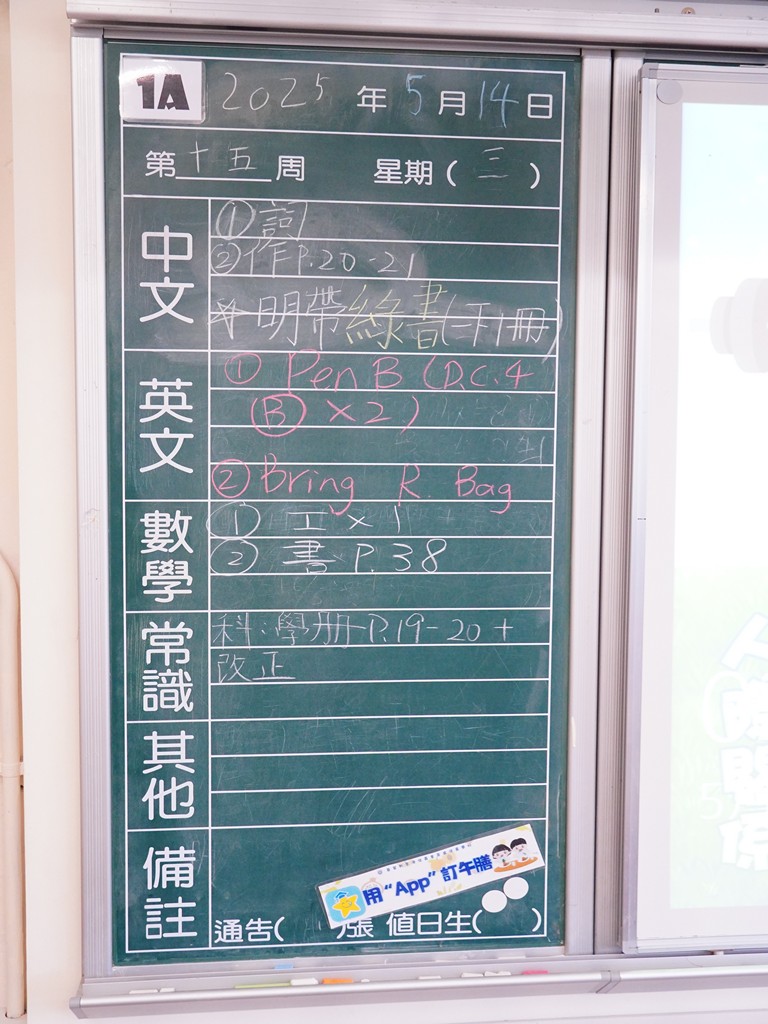 1A 2025年5月14日
第十五周 星期(三)
中文
①詞
②作P.20-21
*明帶綠書(二下1冊)
英文
① Pen B (D.C.4
Ⓑ ×2)
② Bring R. Bag
數學
① 工×1
② 書 P.38
常識
科:學册P.19-20+
改正
其他
備註
用“App”訂午膳
通告( )張 值日生( )
人際關係